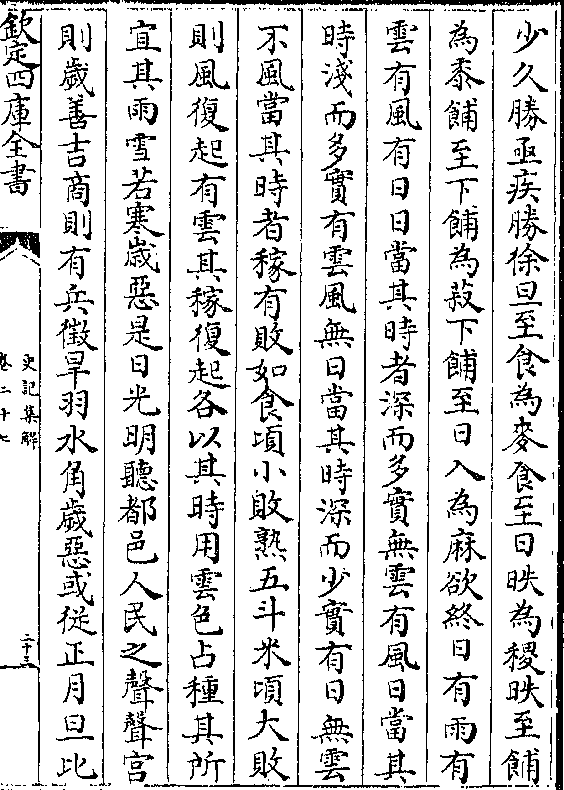 少久勝亟疾勝徐旦至食為麥食至日昳為稷昳至餔
為黍餔至下餔為菽下餔至日入為麻欲終日有雨有
雲有風有日日當其時者深而多實無雲有風日當其
時淺而多實有雲風無日當其時深而少實有日無雲
不風當其時者稼有敗如食頃小敗熟五斗米頃大敗
則風復起有雲其稼復起各以其時用雲色占種其所
宜其雨雪若寒歲惡是日光明聽都邑人民之聲聲宮
則歲善吉商則有兵徵旱羽水角歲惡或從正月旦比
欽定四庫全書
史記集解
卷二十七
二十三